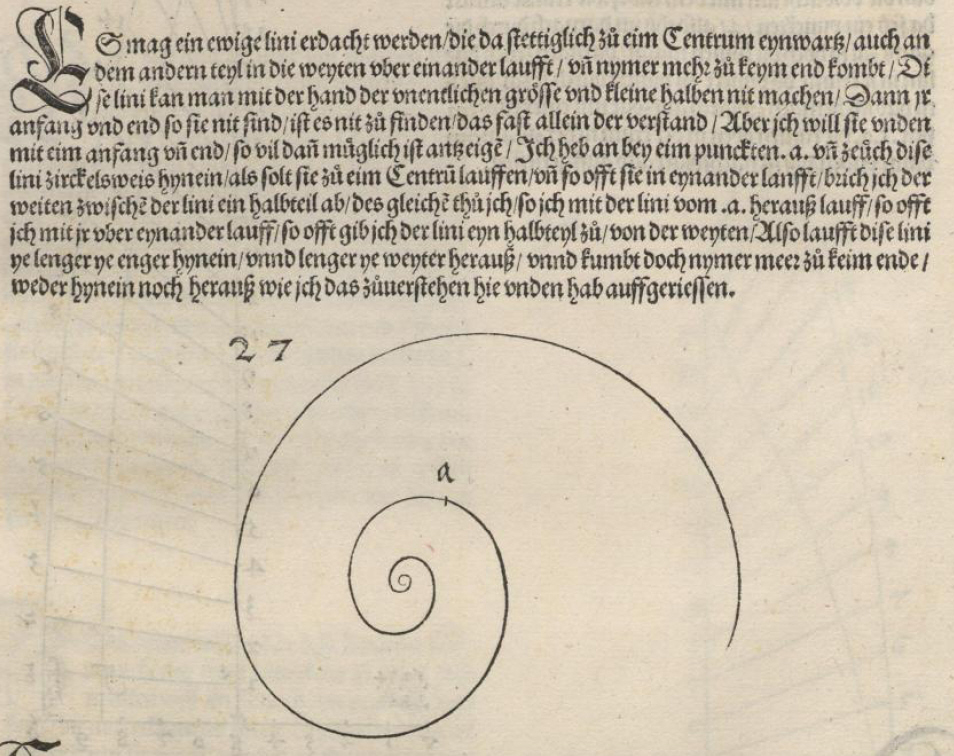 ES mag ein ewige lini erdacht werden/die da stettiglich zů eim Centrum eynwartz/auch an
dem andern teyl in die weyten vber einander laufft/vñ nymer mehr zů keym end kombt/Di
se lini kan man mit der hand der vnentlichen grösse vnd kleine halben nit machen/Dann jr
anfang vnd end so sie nit sind/ist es nit zů finden/das fast allein der verstand/Aber jch will sie vnden
mit eim anfang vñ end/so vil dañ müglich ist antzeigẽ/Jch heb an bey eim punckten.a.vñ zeüch dise
lini zirckelsweis hynein/als solt sie zů eim Centrũ lauffen/vñ so offt sie in eynander laufft/brich jch der
weiten zwischẽ der lini ein halbteil ab/des gleichẽ thů jch/so jch mit der lini vom .a. herauß lauff/so offt
jch mit jr vber eynander lauff/so offt gib jch der lini eyn halbteyl zů/von der weyten/Also laufft dise lini
ye lenger ye enger hynein/vnnd lenger ye weyter herauß/vnnd kumbt doch nymer meer zů keim ende/
weder hynein noch herauß wie jch das zůuerstehen hie vnden hab auffgeriessen.
27
a